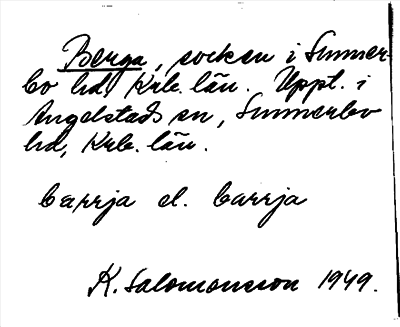 Berga, socken i Sunner-
bo hd, Krb. län. Uppt. i
Angelstads sn, Sunnerbo
hd, Krb. län.
bärrja el. barrja
K. Salomonsson 1949.